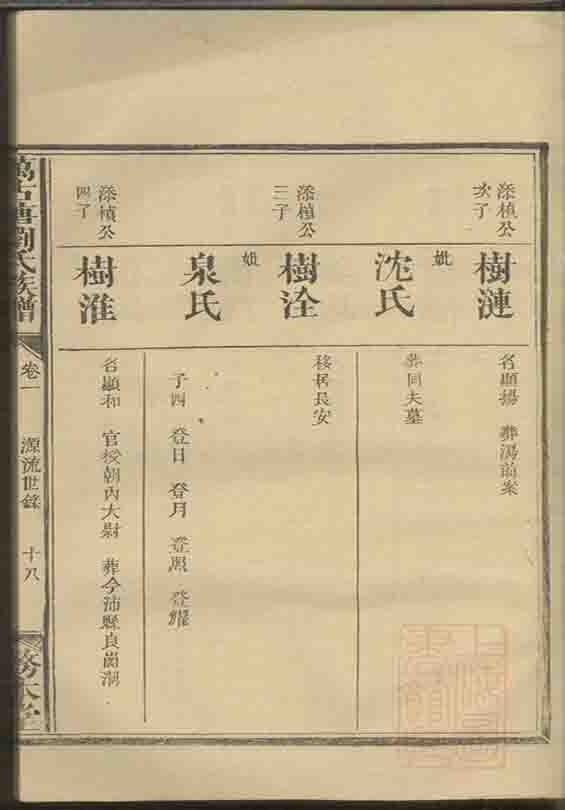 添楨公
次子
樹漣
名顯揚 葬馮前案
妣
沈氏
葬同夫墓
添楨公
三子
樹洤
移居長安
妣
泉氏
子四 登日 登月 登照 登耀
添楨公
四子
樹淮
名顯和 官授朝內大尉 葬今沛縣良崗洞
劉氏族譜
卷一
源流世錄
十八
務本堂